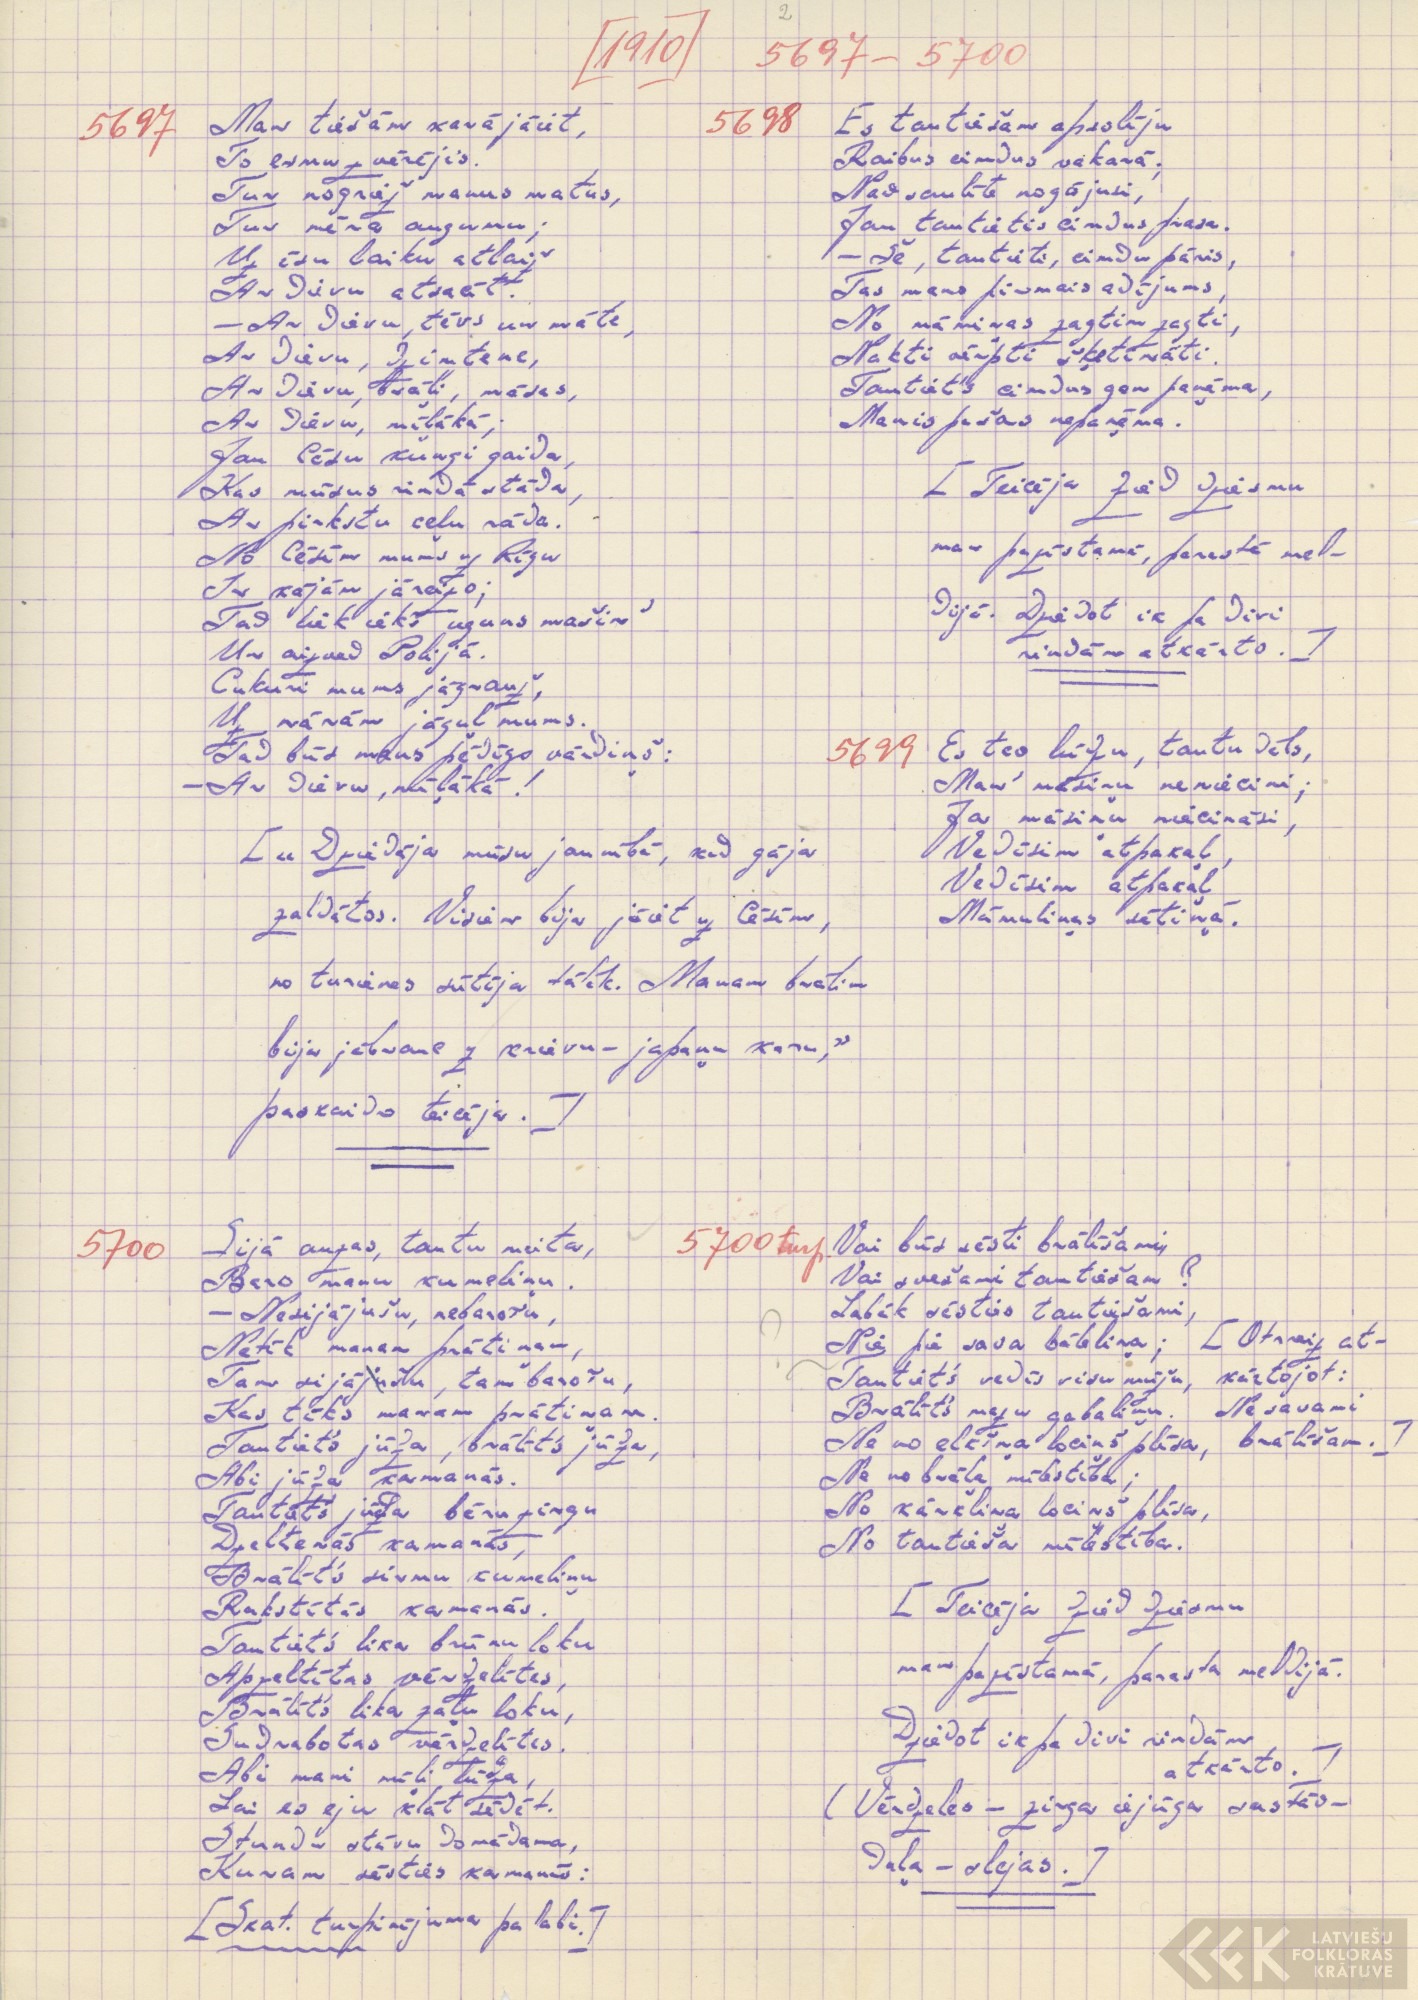 2
[1910] 5697–5700
5697
Man tiešām karājāiet,
To esmu vērējis.
Tur nogriež manus matus,
Tur mēra augumu;
Uz īsu laiku atlaiž
Ar Dievu atsacīt.
– Ar Dievu, tēvs un māte,
Ar Dievu, dzimtene,
Ar Dievu, brāļi, māsas,
Ar Dievu, mīļākā;
Jau Cēsu kungi gaida,
Kas mūsus rindā stāda,
Ar pirkstu ceļu rāda.
No Cēsīm mums uz Rīgu
Ir kājām jāraizo;
Tad liek iekš uguns mašīn'
Un aizved Polijā.
Cukuri mums jāgrauž,
Uz nārām jāguļ mums.
Tad būs mans pēdīgs vārdiņš:
– Ar Dievu, mīļākā!
[„Dziedāja mūsu jaunībā, kad gāja
zaldātos. Visiem bija jāiet uz Cēsīm,
no turienes sūtīja tālāk. Manam brālim
bija jābrauc uz krievu–japāņu karu,”
paskaidro teicēja.]
5698
Es tautiešam apsolīju
Raibus cimdus vakarā;
Nav saulīte nogājusi,
Jau tautietis cimdus prasa.
– Še, tautieti, cimdu pāris,
Tas mans pirmais adījums,
No māmiņas zagtim zagti,
Naktī vērpti šķetināti.
Tautiet's cimdus gan paņēma,
Manis pašas nepaņēma.
[Teicēja dzied dziesmu
man pazīstamā, parastā mel–
dijā. Dziedot ik pa divi
rindām atkārto.]
5699
Es teo lūdzu, tautu dēls,
Man' māsiņu neniecini;
Ja māsiņu niecināsi,
Vedīsim atpakaļ,
Vedīsim atpakaļ
Māmuliņas sētiņā.
5700
Sijā auzas, tautu meita,
Baro manu kumeliņu.
– Nesijājušu, nebarošu,
Netīk manam prātiņam,
Tam sijāšu, tam barošu,
Kas tīks manam prātiņam.
Tautiet's jūdza, brālīt's jūdza,
Abi jūdza kamanās.
Tautiet's jūdza bēru zirgu
Dzeltenās kamanās,
Brālīt's sirmu kumeliņu
Rakstītās kamanās.
Tautiet's lika brūnu loku
Apzeltītas vērdzelītes,
Brālīt's lika zaļu loku,
Sudrabotas vērdzelītes.
Abi mani mīļi lūdza,
Lai es eju klāt sēdēt.
Stundu stāvu domādama,
Kuram sēsties kamanās:
[Skat. turpinājuma pa labi.]
5700 turp.
Vai būs sēsti brālīšami,
Vai svešami tautiešam?
Labāk sēstios tautiešami,
Nie pie sava bāleliņa;
Tautiet's vedīs visu mūžu,
Brālīt's mazu gabaliņu.
[Otrreiz at–
kārtojot:
Ne savami
brālīšam.]
Ne no elkšņa lociņš plīsa,
Ne no brāļa mīlestība;
No kārkliņa lociņš plīsa,
No tautieša mīlestība.
[Teicēja dzied dziesmu
man pazīstamā, parasta meldijā.
Dziedot ik pa divi rindām
atkārto.]
(Vērdzeles – zirga iejūga sastāv–
daļa – slejas.]
LATVIEŠU
FOLKLORAS
KRĀTUVE